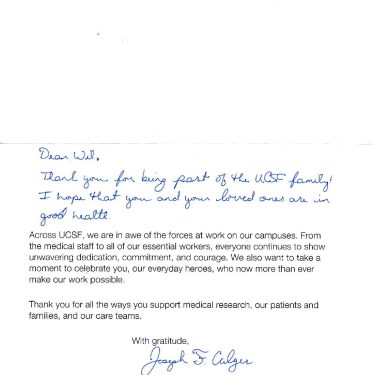 Dear Wil,
Thank you for being part of the UCSF family!
I hope that you and your loved ones are in
good health.
Across UCSF, we are in awe of the forces at work on our campuses. From
the medical staff to all of our essential workers, everyone continues to show
unwavering dedication, commitment, and courage. We also want to take a
moment to celebrate you, our everyday heroes, who now more than ever
make our work possible.
Thank you for all the ways you support medical research, our patients and
families, and our care teams.
With gratitude,
Joseph F.